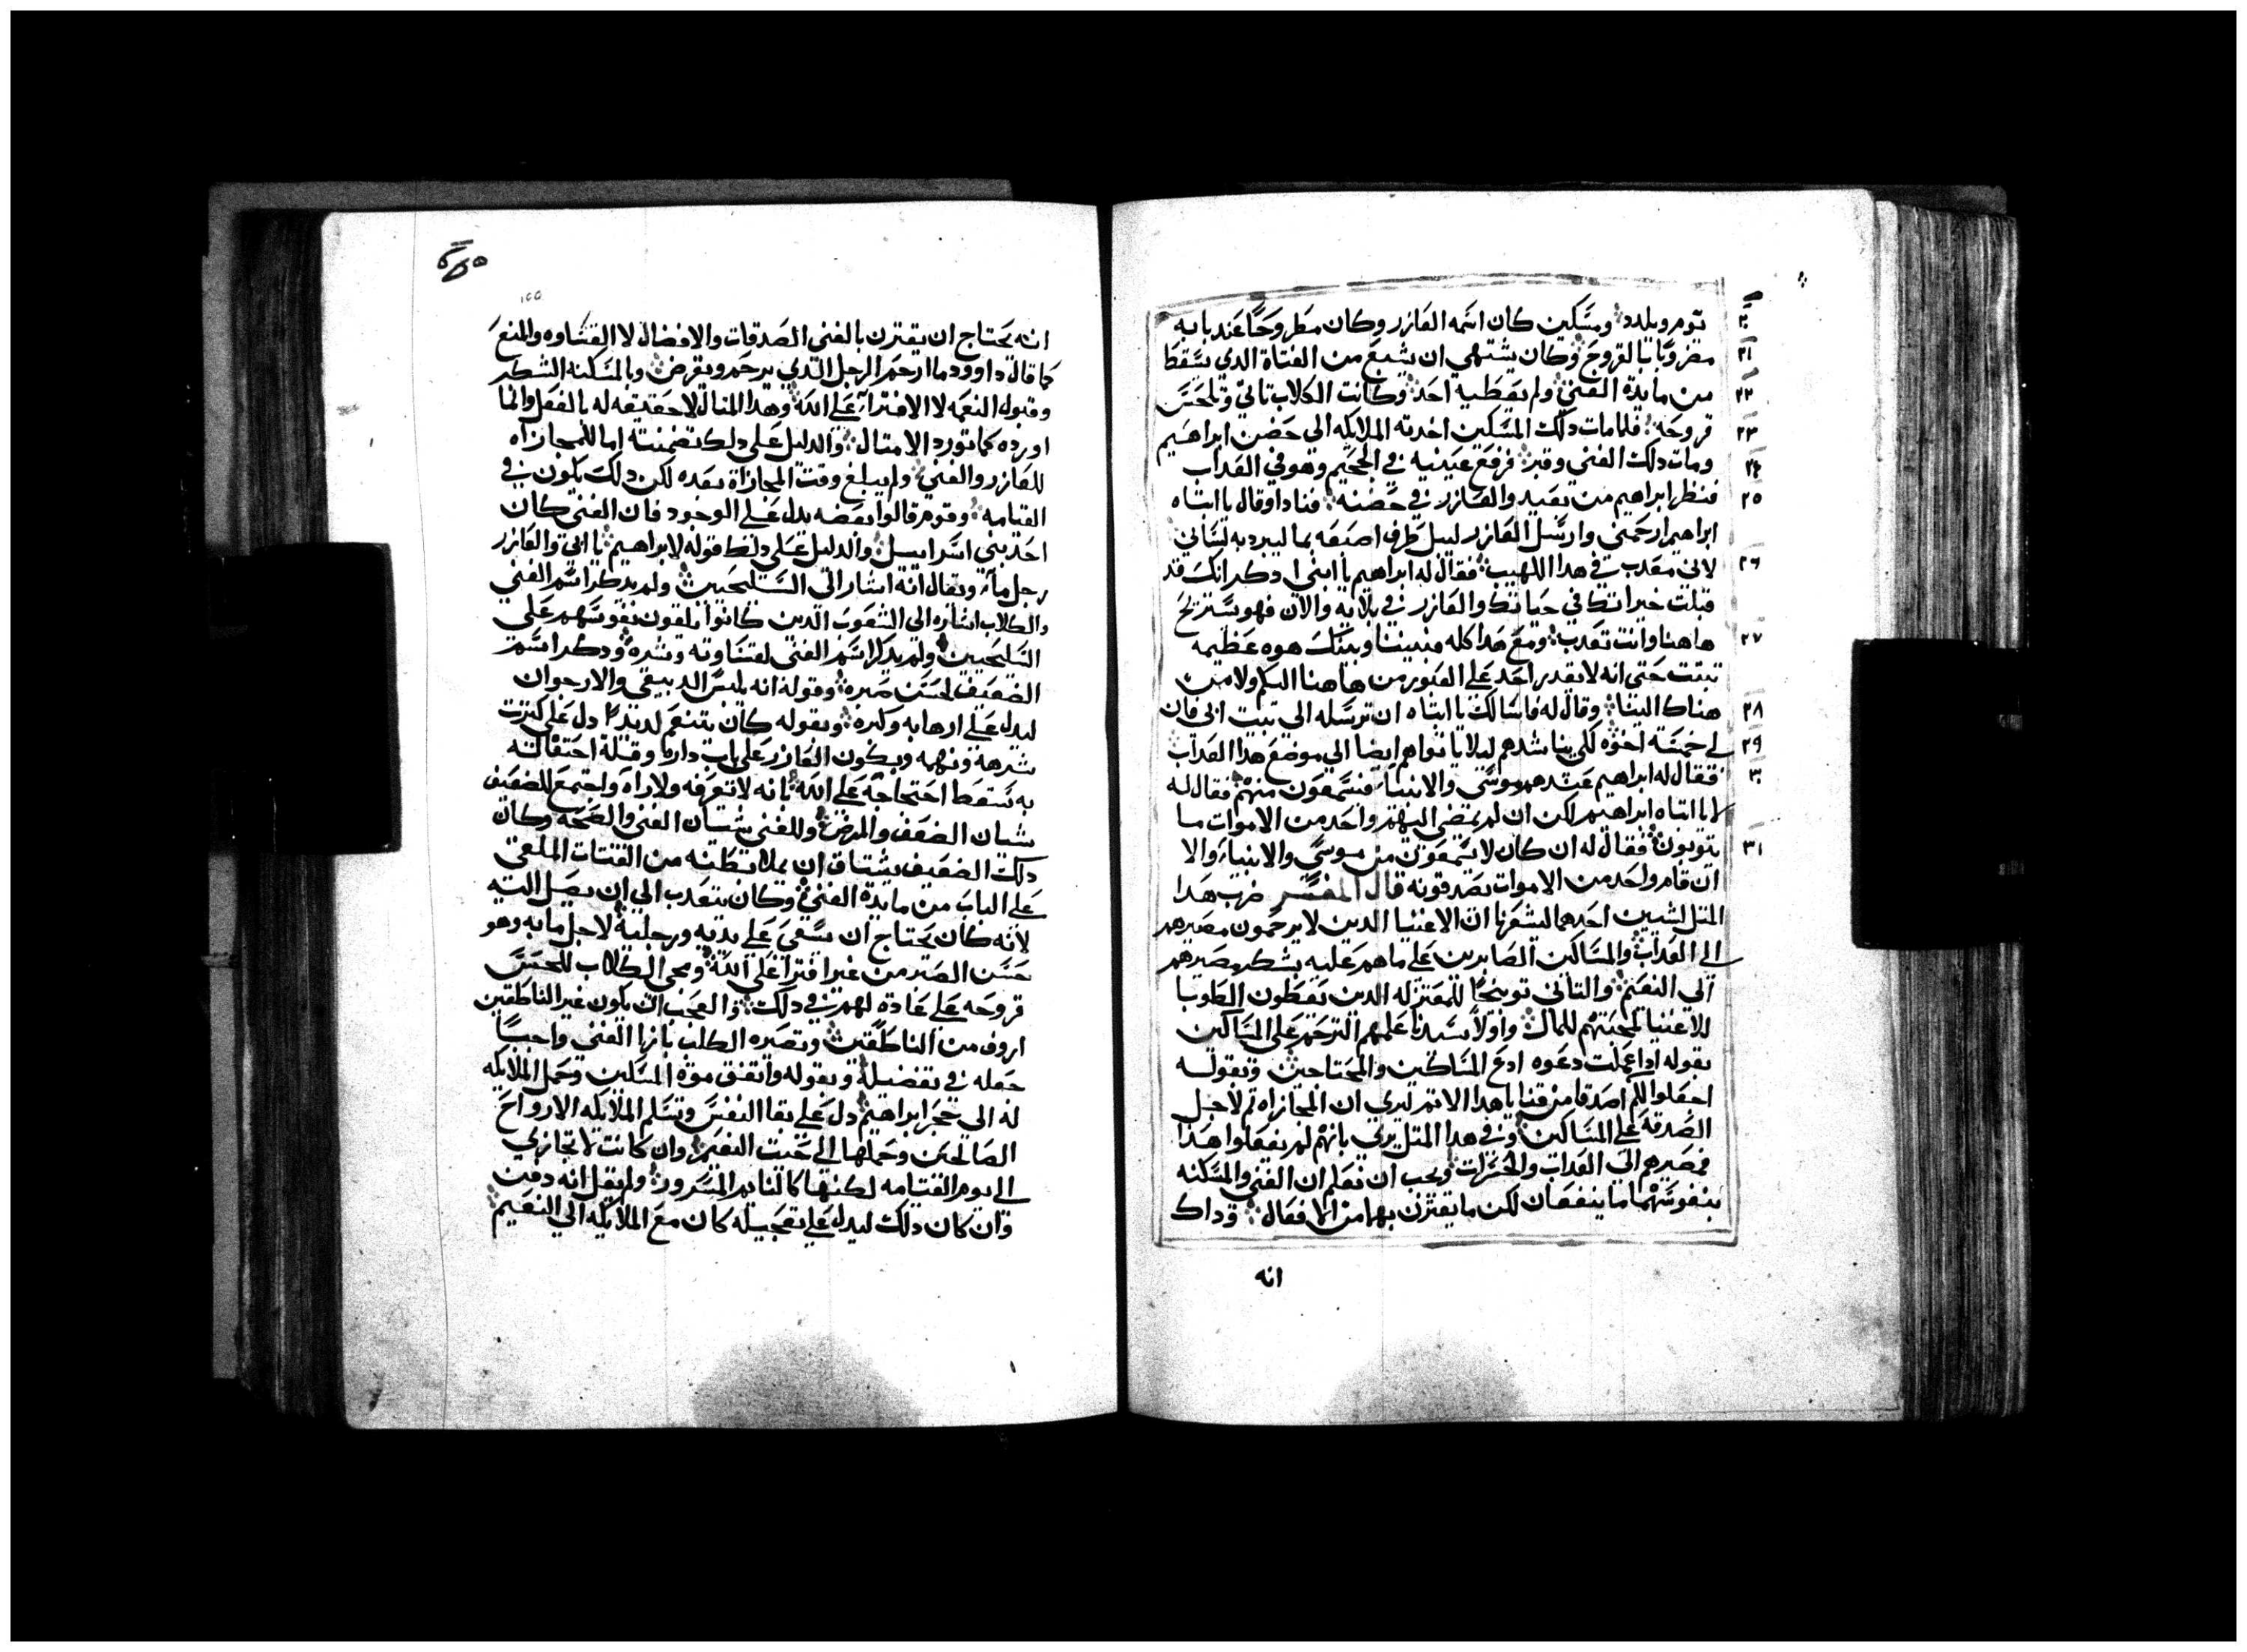 يوم ويلدد ومسكين كان اسمه العازر وكان مطروحا عند بابه
٢٠
مضروبا بالقروح وكان يشتهي ان يشبع من الفتاة الدي يسقط
٢١
من مايدة الغني ولم يعطيه احد وكانت الكلاب تاتي وتلحس
٢٢
قروحه فلما مات دلك المسكين اخدته الملايكه الي حضن ابراهيم
٢٣
ومات دلك الغني وقبر فرفع عينيه في الجحيم وهو في العداب
٢٤
فنظر ابراهيم من بعيد والعازر في حضنه فنادا وقال يا ابتاه
٢٥
ابراهيم ارحمني وارسل العازر ليبل طرف اصبعه بما ليبرد به لساني
لاني معدب في هدا اللهيب فقال له ابراهيم يا ابني ادكر انك قد
٢٦
قبلت خيراتك في حياتك والعازر في بلايه والان فهو يستريح
هاهنا وانت تعدب ومع هدا كله فبيننا وبينك هوه عظيمه
٢٧
تبتت حتي انه لا يقدر احد علي العبور من هاهنا اليكم ولا من
هناك الينا وقال له فاسالك يا ابتاه ان ترسله الي بيت ابي فان
٢٨
لي خمسة اخوه لكي يناشدهم ليلا ياتوا هم ايضا الي موضع هدا العداب
٢٩
فقال له ابراهيم عندهم موسي والانبيا فيسمعون منهم فقال له
٣٠
لا يا ابتاه ابراهيم لكن ان لم يمضي اليهم واحد من الاموات ما
يتوبون فقال له ان كان لا يسمعون من موسي والانبياء والا
٣١
ان قام واحد من الاموات يصدقونه قال المفسر ضرب هدا
المتل لشيين احدهما ليشعرنا ان الاغنيا الدين لا يرحمون مصيرهم
الي العداب والمساكين الصابرين علي ماهم عليه بشكر مصيرهم
الي النعيم والتاني توبيخا للمعتزله الدين يعطون الطوبا
للاغنيا لمحبتهم للمال واولا سيدنا علمهم الترحم علي المساكين
بقوله ادا عملت دعوه ادع المساكين والمحتاجين وبقوله
اجعلوا لكم اصدقا من قنايا هدا الاتم ليري ان المجازاه تم لاجل
الصدقه علي المساكين وفي هدا المتل يري بانهم لم يفعلوا هدا
فمصيرهم الي العداب والحسرات ويجب ان نعلم ان الغني والمسكنه
بنفوسهما ما ينفعان لكن ما يقترن بهما من الافعال وداك
انه
انه يحتاج ان يقترن بالغني الصدقات والافضال لا القساوه والمنع
كما قال داوود ما ارحم الرجل الدي يرحم ويقرض وبالمسكنه الشكر
وقبول النعمه لا الافتراء علي الله وهدا المتال لا حقيقه له بالفعل وانما
اورده كما تورد الامتال والدليل علي دلك تضمنته اما للمجازاه
للعازر والغني ولم يبلغ وقت المجازاة بعده لكن دلك يكون في
القيامه وقوم قالوا بعضه يدل علي الوجود فان الغني كان
احد بني اسراييل والدليل علي دلك قوله لابراهيم يا ابي والعازر
رجل ماء ويقال انه اشار الي السليحيين ولم يدكر اسم الغني
والكلاب اشاره الي الشعوب الدين كانوا يلقون نفوسهم علي
السليحيين ولم يدكر اسم الغني لقساوته وشره ودكر اسم
الضعيف لحسن صبره وقوله انه يلبس الدبيقي والارجوان
ليدل علي ارهابه وكبره وبقوله كان يتنعم لديدا دل علي كترت
شرهه ونهمه وبكون العازر علي باب داره وقلة احتفاله
به يسقط احتجاجه علي الله بانه لا يعرفه ولا راه واجتمع للضعيف
شيان الضعف والمرض وللغني شيان الغني والصحه وكان
دلك الضعيف يشتاق ان يملا بطنه من الفتات الملقي
علي الباب من مايدة الغني وكان يتعدب الي ان يصل اليه
لانه كان يحتاج ان يسعي علي يديه ورجليه لاجل مابه وهو
حسن الصبر من غير افترا علي الله ومجي الكلاب للحس
قروحه علي عادة لهم في دلك والعجب ان يكون غير الناطقين
اروف من الناطقين وتصيره الكلب بازا الغني واجبا
جعله في تفضيله وبقوله واتفق موة المسكين وحمل الملايكه
له الي حجر ابراهيم دل علي بقا النفس وتسلم الملايكه الارواح
الصالحين وحملها الي حيت النعيم وان كانت لا تجازي
الي يوم القيامه لكنها كالنايم المسرور ولم يقل انه دفن
وان كان دلك ليدل علي تعجيله كان مع الملايكه الي النعيم